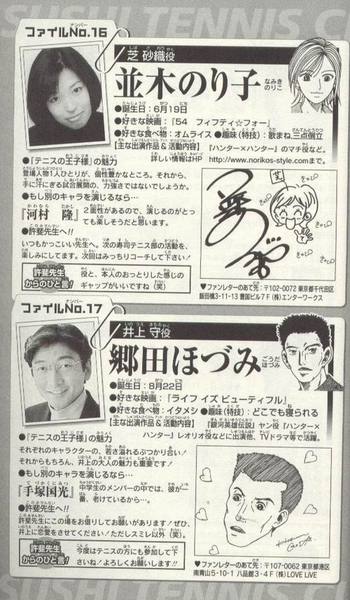 SUSHI TENNIS C
ファイルNo.16
ナンバー
芝 砂織役
並木のり子
なみき のりこ
●誕生日：6月19日
●好きな映画：『54 フィフティ☆フォー』
●好きな食べ物：オムライス ●趣味（特技）：歌まね、三点倒立
【主な出演作品＆活動内容】 『ハンター×ハンター』のマチ役など。
詳しい情報はHP http://www.norikos-style.comまで。
●『テニスの王子様』の魅力
登場人物1人ひとりが、個性豊かなところ。それから、
手に汗にぎる試合展開の、力強さではないでしょうか。
●もし別のキャラを演じるなら…
『河村 隆』
かわむら たかし
2面性があるので、演じるのがとっても楽しそうだと思います。
●許斐先生へ!!
いつもかっこいい先生へ。次の寿司テニス部の活動を、
楽しみにしてます。次回はみっちりコーチして下さい!
許斐先生からのひと言!
役と、本人のおっとりした感じのギャップがいいですね（笑）
♥ファンレターのあて先：〒102-0072 東京都千代田区
飯田橋3-11-13 豊国ビル7F（株）エンターワークス
ファイルNo.17
ナンバー
井上 守役
郷田ほづみ
ごうだ ほづみ
●誕生日：8月22日
●好きな映画：『ライフ イズ ビューティフル』
●好きな食べ物：イタメシ ●趣味（特技）：どこでも寝られる
【主な出演作品＆活動内容】 『銀河英雄伝説』ヤン役『ハンター×
ハンター』レオリオ役などに出演他、TVドラマ等で活躍。
●『テニスの王子様』の魅力
それぞれのキャラクターの、若さ溢れるぶつかり合い!
それからもちろん、井上の大人の魅力も重要です!
●もし別のキャラを演じるなら…
『手塚国光』
てづかくにみつ
中学生のメンバーの中では、彼が一番、老けているから…。
●許斐先生へ!!
許斐先生にこの場をお借りしてお願いがあります! ぜひ、
井上に恋愛をさせてください! ただしスミレ以外（笑）。
許斐先生からのひと言!
今度はテニスの方にも参加して下さいね! よろしくお願いします!!
♥ファンレターのあて先：〒107-0062 東京都港区
南青山5-10-11 八品館3・4F（株）LOVE LIVE